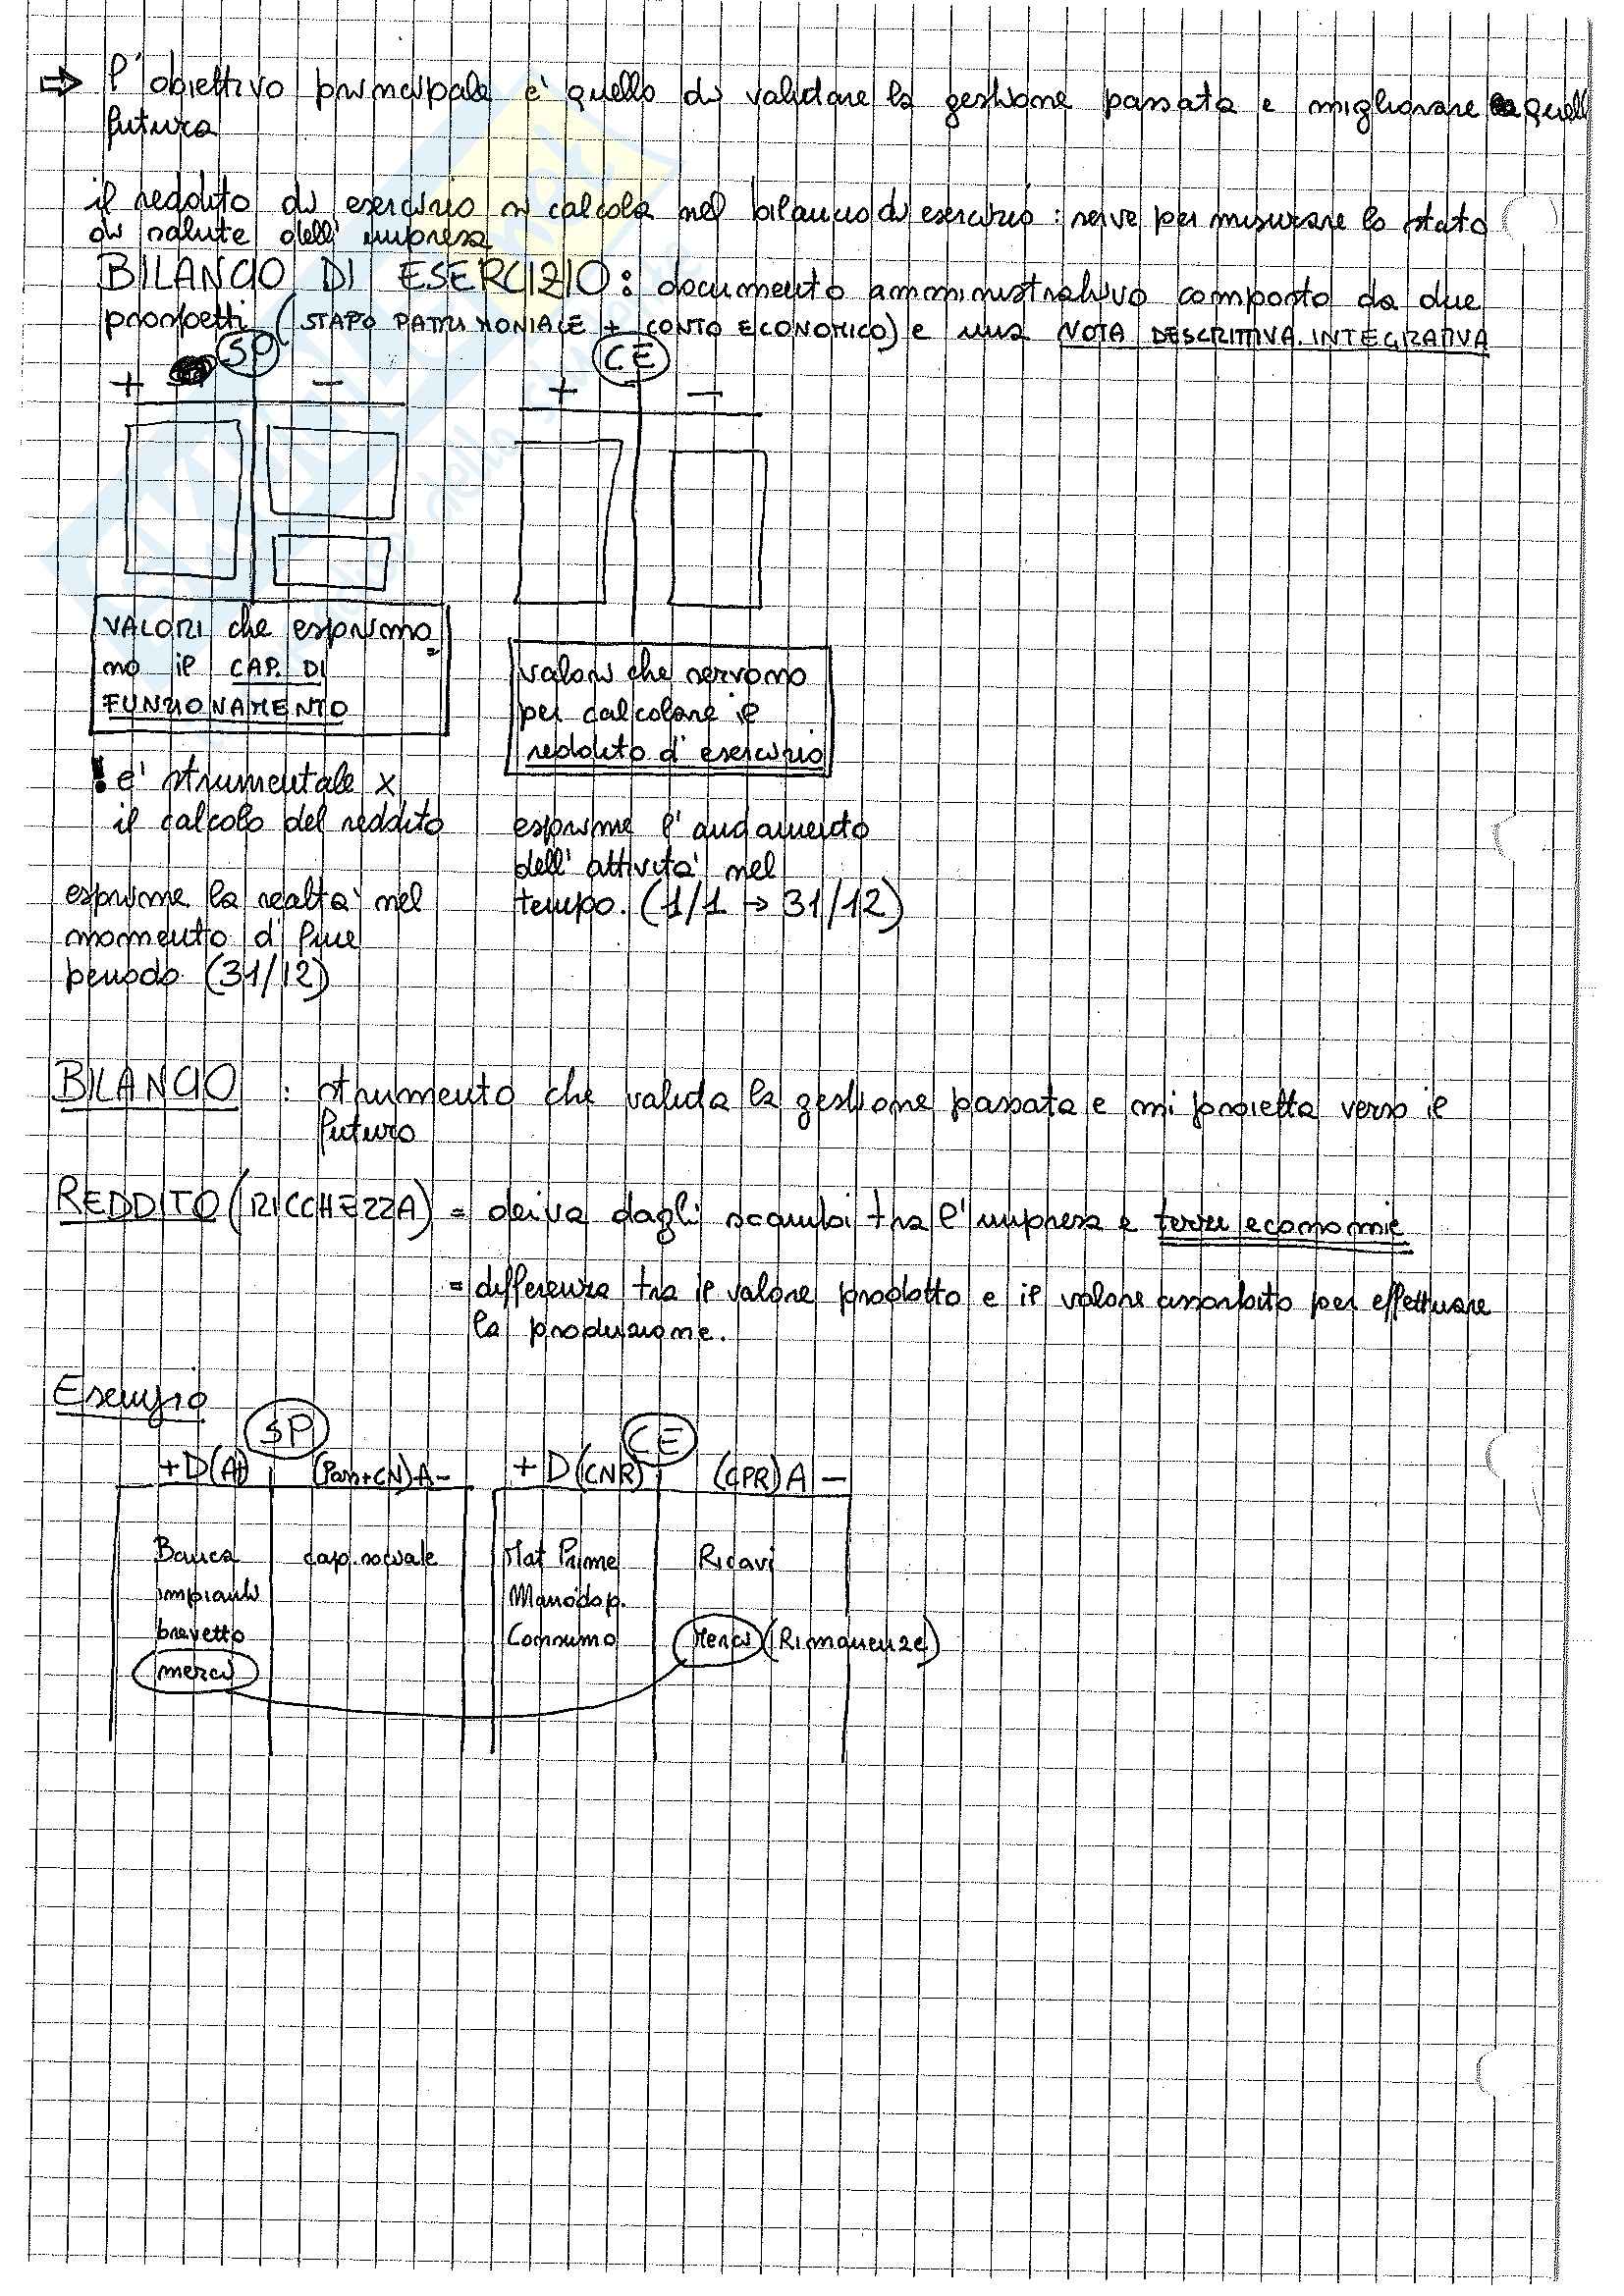 ⇒ l'obiettivo principale e' quello di validare la gestione passata e migliorare quella
futura
il reddito di esercizio si calcola nel bilancio di esercizio : serve per misurare lo stato
di salute dell' impresa
BILANCIO DI ESERCIZIO: documento amministrativo composto da due
prospetti (STAPO PATRIMONIALE + CONTO ECONOMICO) e una NOTA DESCRITTIVA INTEGRATIVA
SP CE
+ - + -
VALORI che esprimo
no il CAP. DI
FUNZIONAMENTO
valori che servono
per calcolare il
reddito d' esercizio
! e' strumentale x
il calcolo del reddito
esprime la realta' nel
momento d' fine
periodo (31/12)
esprime l' andamento
dell' attivita' nel
tempo. (1/1 → 31/12)
BILANCIO : strumento che valida la gestione passata e mi proietta verso il
futuro
REDDITO (RICCHEZZA) = deriva dagli scambi tra l' impresa e terze economie
= differenza tra il valore prodotto e il valore assorbito per effettuare
la produzione.
Esempio
SP CE
+D(At) (Pass+CN)A- +D(CNR) (CPR)A -
Banca cap. sociale Mat Prime Ricavi
impianti Manodop.
brevetto Consumo Merci (Rimanenze)
merci